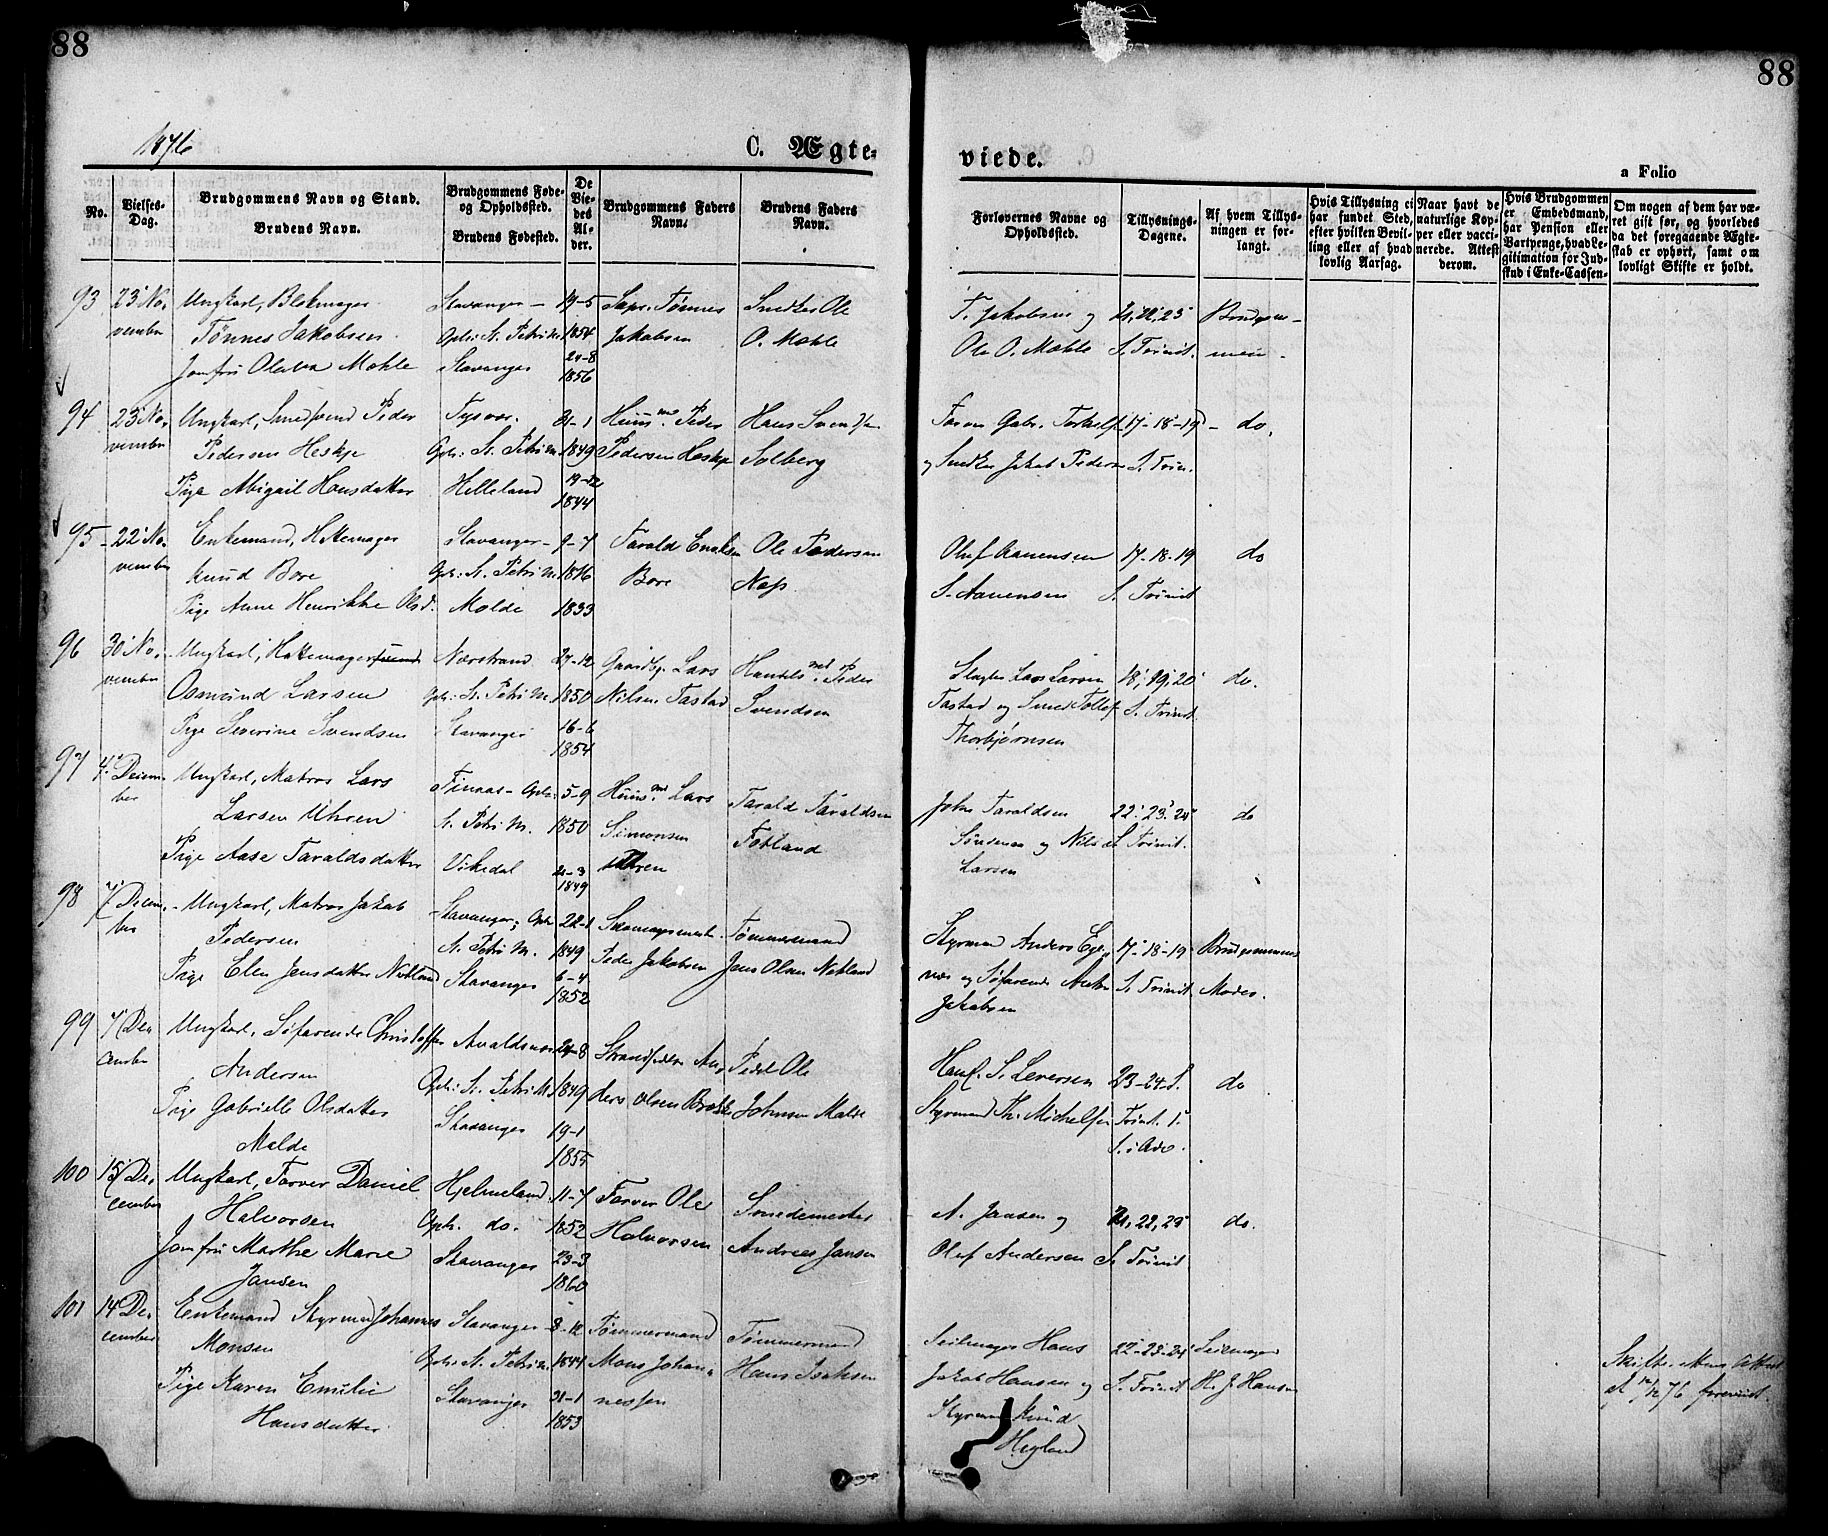 88
88
1876
C. Ægte-
viede.
a Folio
No.
Vielses-
Dag.
Brudgommens Navn og Stand.
Brudens Navn.
Brudgommens Føde-
og Opholdssted.
Brudens Fødested.
De
Vie-
des
Al-
der.
Brudgommens Faders
Navn.
Brudens Faders
Navn.
Forlovernes Navne og
Opholdssted.
Tillysnings-
Dagene.
Af hvem Tillys-
ningen er for-
langt.
Hvis Tillysning ei
har fundet Sted,
efter hvilken Bevil-
ling eller af hvad
lovlig Aarsag.
Naar havt de
naturlige Kop-
per eller vacci-
nerede. Attest
derom.
Hvis Brudgommen
er Embedsmand,
har Pension eller
Vartpenge, hvad Le-
gitimation for Ind-
skud i Enke-Cassen.
Om nogen af dem har væ-
ret gift før, og hvorledes
da det foregaaende Ægte-
skab er ophørt, samt om
lovligt Skifte er holdt.
93
23 No-
vember
Ungkarl,
Tønnes Jakobsen
Jomfru Olava Mæhle
Stavanger
Oph: St. Petri M.
Stavanger
19-5
1854
1856
Tønnes
Jakobsen
Snedker Ole
O. Mæhle
T. Jakobsen og
Ole O. Mæhle
21, 22, 23
S. Trinit.
94
23 No-
vember
Ungkarl, Smedsvend Peder
Pedersen Heskje
Pige Abigail Hansdatter
Tysvær.
Oph: St. Petri M.
Helleland
21-1
1849
19-12
1844
Huusm. Peder
Pedersen Heskje
Hans Svendsen
Solberg
Gabr. Torkels.
og Snedker Jakob Pedersen
17-18-19
S. Trin.
do.
95
22 No-
vember
Enkemand, Hattemager
Knud Bore
Pige Anne Henrikke Olsd.
Stavanger
Oph: St. Petri M.
Molde
9-7
1816
1833
Tarald
Bore
Ole Pedersen
Næs
Oluf Aanensen
S. Aanensen
17-18-19
S. Trinit
do
96
30 No-
vember
Ungkarl, Hattemagersvend
Osmund Larsen
Pige Severine Svendsen
Nærstrand
Oph: St. Petri M.
Stavanger
27-12
1850
16-6
1854
Gaardbr. Lars
Nilsen Tastad
Handelsmd. Peder
Svendsen
Slagter Lars Larsen
Tastad og Smed Tollef
Thorbjørnsen
18, 19, 20
S. Trinit
do.
97
4 Decem-
ber
Ungkarl, Matros Lars
Larsen Uhren
Pige Aase Taraldsdatter
Finnaas - Oph:
St. Petri M.
Vikedal
5-9
1850
21-3
1849
Huusmd. Lars
Simonsen
Uhren
Tarald Taraldsen
Fotland
John Taraldsen
og Nils
Larsen
22, 23, 24
S. Trinit.
do
98
7 Decem-
ber
Ungkarl, Matros Jakob
Pedersen
Pige Elen Jensdatter Nekland
Stavanger; Oph:
St. Petri M.
Stavanger
22-1
1849
6-4
1852
Skomagermester
Peder Jakobsen
Tømmermand
Jens Olsen Nekland
Styrmand Anders Ege-
næs og Søfarende
Jakobsen
17-18-19
S. Trinit
Brudgommens
Moder.
99
7 De-
cember
Ungkarl, Søfarende Christoffer
Andersen
Pige Gabrielle Olsdatter
Malde
Avaldsnæs
Oph: St. Petri M.
Stavanger
24-8
1849
19-1
1855
Strandsidder An-
ders Olsen
Ole
Johnsen Malde
Hans S. Leversen
Styrmand Th. Michelsen
23-24-S.
Trinit. 1.
S. i Adv.
do
100
15 De-
cember
Ungkarl, Farver Daniel
Halvorsen
Jomfru Marthe Marie
Jansen
Hjelmeland
Oph. do.
Stavanger
11-7
1852
23-3
1860
Farver Ole
Halvorsen
Smedemester
Andreas Jansen
A. Jansen og
Oluf Andersen
21, 22, 23
S. Trinit
do.
101
14 De-
cember
Enkemand Styrmand Johannes
Monsen
Pige Karen Emilie
Hansdatter
Stavanger
Oph: St. Petri M.
Stavanger
8-12
1844
21-1
1853
Tømmermand
Mons Johan-
nessen
Tømmermand
Hans Isaksen
Seilmager Hans
Jakob Hansen og
Styrmand Knud
Hegland
22-23-24
S. Trinit
Seilmager
H. J. Hansen
Skifter. Attest
af 12/12 76 forevist.